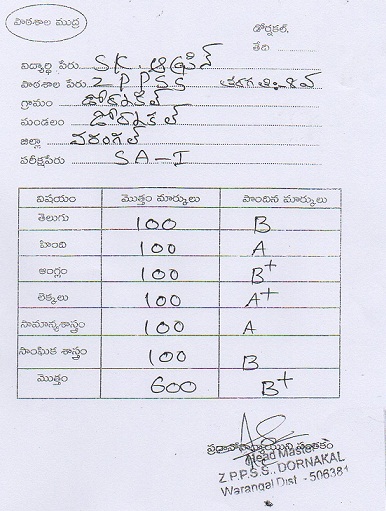 పాఠశాల ముద్ర
డోర్నకల్.
తేది
విద్యార్థి పేరు SK. ఆఫ్రిన్
పాఠశాల పేరు ZPPSS తరగతి: 8వ
గ్రామం డోర్నకల్
మండలం డోర్నకల్
జిల్లా వరంగల్
పరీక్షపేరు SA-I
విషయం మొత్తం మార్కులు పొందిన మార్కులు
తెలుగు 100 B
హింది 100 A
ఆంగ్లం 100 B+
లెక్కలు 100 A+
సామాన్యశాస్త్రం 100 A
సాంఘిక శాస్త్రం 100 B
మొత్తం 600 B+
ప్రధానోపాధ్యాయుని సంతకం
Head Master
Z.P.P.S.S., DORNAKAL
Warangal Dist - 506381